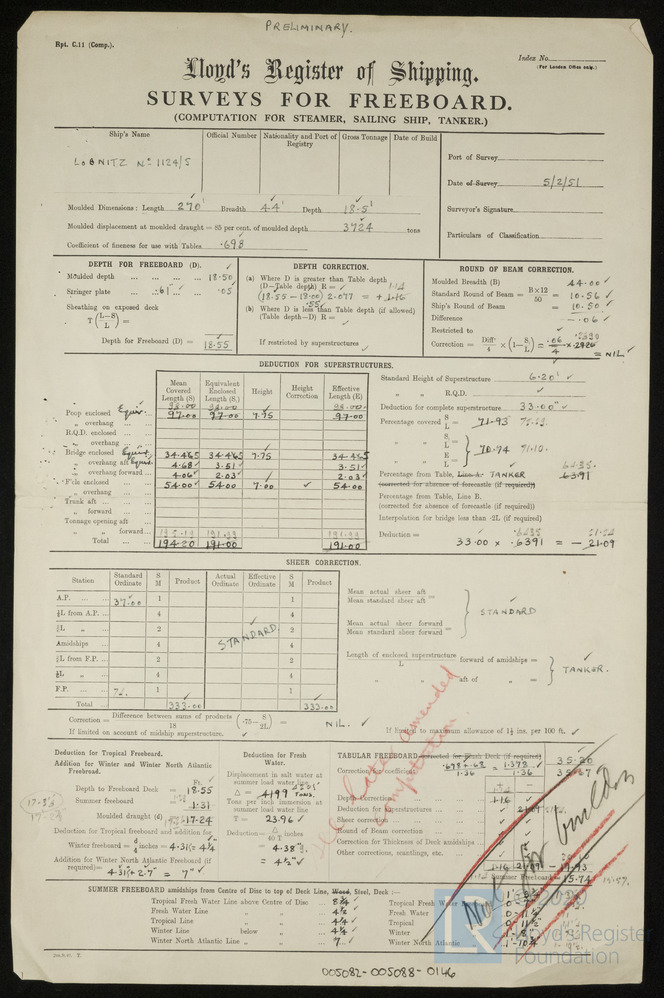 PRELIMINARY.
Rpt. C.11 (Comp.).
Index No.
(For London Office only.)
Lloyd's Register of Shipping.
SURVEYS FOR FREEBOARD.
(COMPUTATION FOR STEAMER, SAILING SHIP, TANKER.)
Ship's Name Official Number Nationality and Port of Registry Gross Tonnage Date of Build
LOBNITZ No 1124/5
Port of Survey
Date of Survey 5/2/51
Surveyor's Signature
Particulars of Classification
Moulded Dimensions: Length 270' Breadth 44' Depth 18.5'
Moulded displacement at moulded draught = 85 per cent. of moulded depth 3724 tons
Coefficient of fineness for use with Tables .698
DEPTH FOR FREEBOARD (D).
Moulded depth ... ... ... ... 18.50
Stringer plate ... .61 ... .05
Sheathing on exposed deck
T (L-S / L) =
Depth for Freeboard (D) = 18.55
DEPTH CORRECTION.
(a) Where D is greater than Table depth
(D-Table depth) R =
(18.55 - 18.00) 2.077 = + 1.16
(b) Where D is less than Table depth (if allowed)
(Table depth-D) R =
If restricted by superstructures
ROUND OF BEAM CORRECTION.
Moulded Breadth (B) 44.00
Standard Round of Beam = B×12 / 50 = 10.56
Ship's Round of Beam = 10.50
Difference .06
Restricted to
Correction = Diff / 4 × (1 - S / L) = .06 / 4 × .2926 = NIL
DEDUCTION FOR SUPERSTRUCTURES.
Mean Covered Length (S) Equivalent Enclosed Length (S₁) Height Height Correction Effective Length (E)
Poop enclosed Equiv. 97.00 97.00 7.75 97.00
" overhang
R.Q.D. enclosed
" overhang
Bridge enclosed Equiv. 34.465 34.465 7.75 34.465
" overhang aft Equiv. 4.68 3.51 3.51
" overhang forward 4.06 2.03 2.03
F'cle enclosed 54.00 54.00 7.00 54.00
" overhang
Trunk aft
" forward
Tonnage opening aft
" " forward
Total 194.20 191.00 191.00
Standard Height of Superstructure 6.20'
" " R.Q.D.
Deduction for complete superstructure 33.00"
Percentage covered S / L = 71.93
" " S₁ / L =
" " E / L = 70.74
Percentage from Table, Line A. TANKER 63.91
(corrected for absence of forecastle (if required))
Percentage from Table, Line B.
(corrected for absence of forecastle (if required))
Interpolation for bridge less than ·2L (if required)
Deduction = 33.00 × .6391 = - 21.09
SHEER CORRECTION.
Station Standard Ordinate S M Product Actual Ordinate Effective Ordinate S M Product
A.P. 37.00 1 1
¼L from A.P. 4 4
½L " 2 2
Amidships 4 STANDARD. 4
½L from F.P. 2 2
¼L " 4 4
F.P. 74. 1 1
Total 333.00 333.00
Mean actual sheer aft
Mean standard sheer aft =
Mean actual sheer forward
Mean standard sheer forward =
STANDARD
Length of enclosed superstructure / L forward of amidships =
" " aft of " =
TANKER.
Correction = Difference between sums of products / 18 (·75 - S / 2L) = NIL.
If limited on account of midship superstructure.
If limited to maximum allowance of 1½ ins. per 100 ft.
See later amended computation
Deduction for Tropical Freeboard.
Addition for Winter and Winter North Atlantic Freeboard.
Ft.
Depth to Freeboard Deck = 18.55
Summer freeboard = 1.31
Moulded draught (d) = 17.24
Deduction for Tropical freeboard and addition for
Winter freeboard = d / 4 inches = 4.31 = 4¼
Addition for Winter North Atlantic Freeboard (if required) =
4.31 + 2.7" = 7"
Deduction for Fresh Water.
Displacement in salt water at summer load water line
Δ = 4199 TONS.
Tons per inch immersion at summer load water line
T = 23.96
Deduction = Δ / 40 T inches
= 4.38"
= 4½"
TABULAR FREEBOARD corrected for Flush Deck (if required) 35.20
Correction for coefficient .698 + .68 / 1.36 = 1.378 / 1.36
Depth correction 1.16
Deduction for superstructures 21.09
Sheer correction
Round of Beam correction
Correction for Thickness of Deck amidships
Other corrections, scantlings, etc.
1.16 21.09 - 19.93
Summer Freeboard = 15.74
Not for builders
SUMMER FREEBOARD amidships from Centre of Disc to top of Deck Line, Wood, Steel, Deck :—
Tropical Fresh Water Line above Centre of Disc ... 8¾
Fresh Water Line " " 4½
Tropical Line " " 4¼
Winter Line below " 4¼
Winter North Atlantic Line " " 7
Tropical Fresh Water
Fresh Water
Tropical
Winter
Winter North Atlantic
Lloyd's Register
Foundation
005082-005088-0146